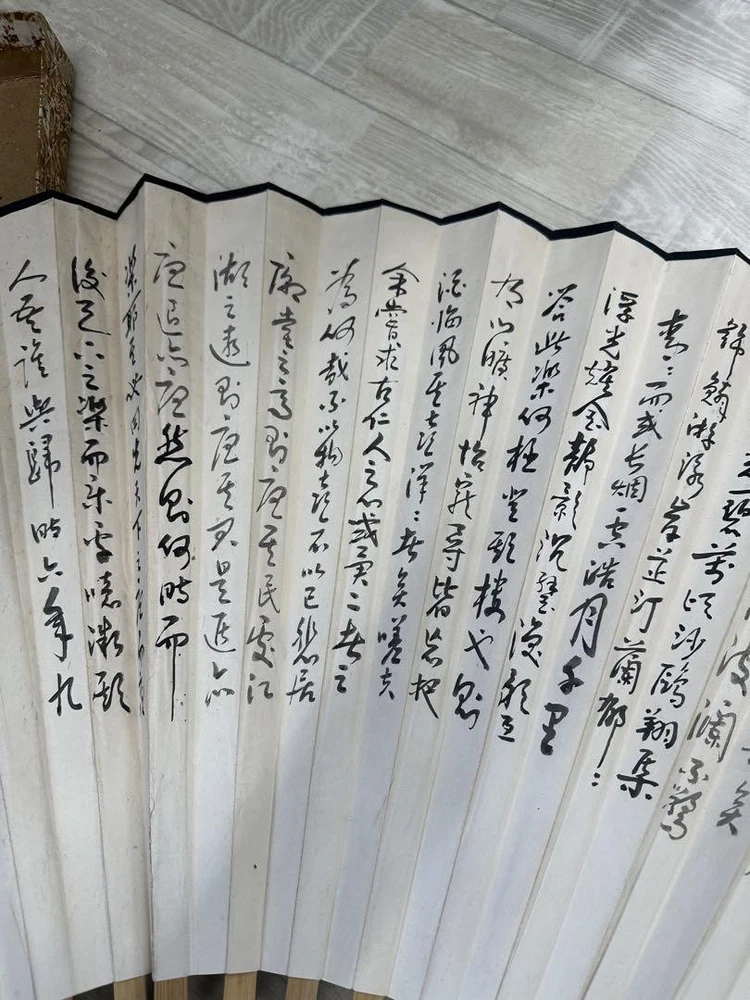 矣
波瀾不驚
一碧萬頃沙鷗翔集
錦鱗游泳岸芷汀蘭郁〻
青〻而或長烟一空皓月千里
浮光耀金靜影沉璧漁歌互
答此樂何極登斯樓也則
有心曠神怡寵辱皆忘把
酒臨風其喜洋〻者矣嗟夫
余嘗求古仁人之心或異二者之
為何哉不以物喜不以己悲居
廟堂之高則憂其民處江
湖之遠則憂其君是進亦
憂退亦憂然則何時而
樂耶其必曰先天下之憂而憂
後天下之樂而樂乎噫微斯
人吾誰與歸時六年九